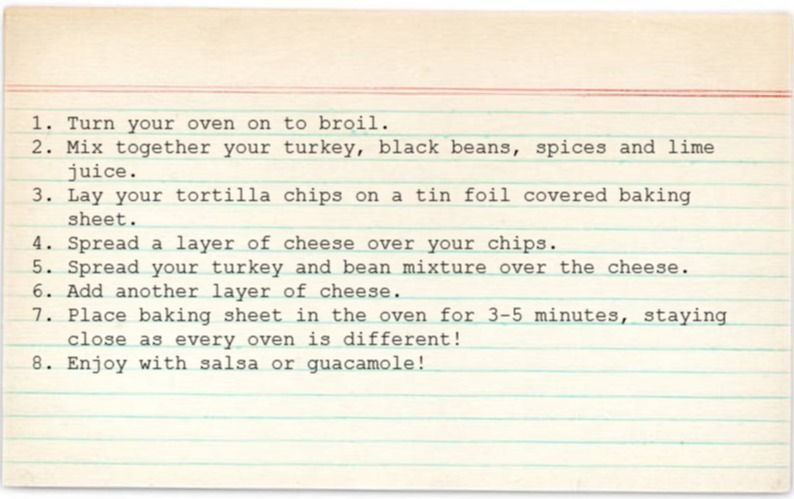 1. Turn your oven on to broil.
2. Mix together your turkey, black beans, spices and lime
juice.
3. Lay your tortilla chips on a tin foil covered baking
sheet.
4. Spread a layer of cheese over your chips.
5. Spread your turkey and bean mixture over the cheese.
6. Add another layer of cheese.
7. Place baking sheet in the oven for 3-5 minutes, staying
close as every oven is different!
8. Enjoy with salsa or guacamole!